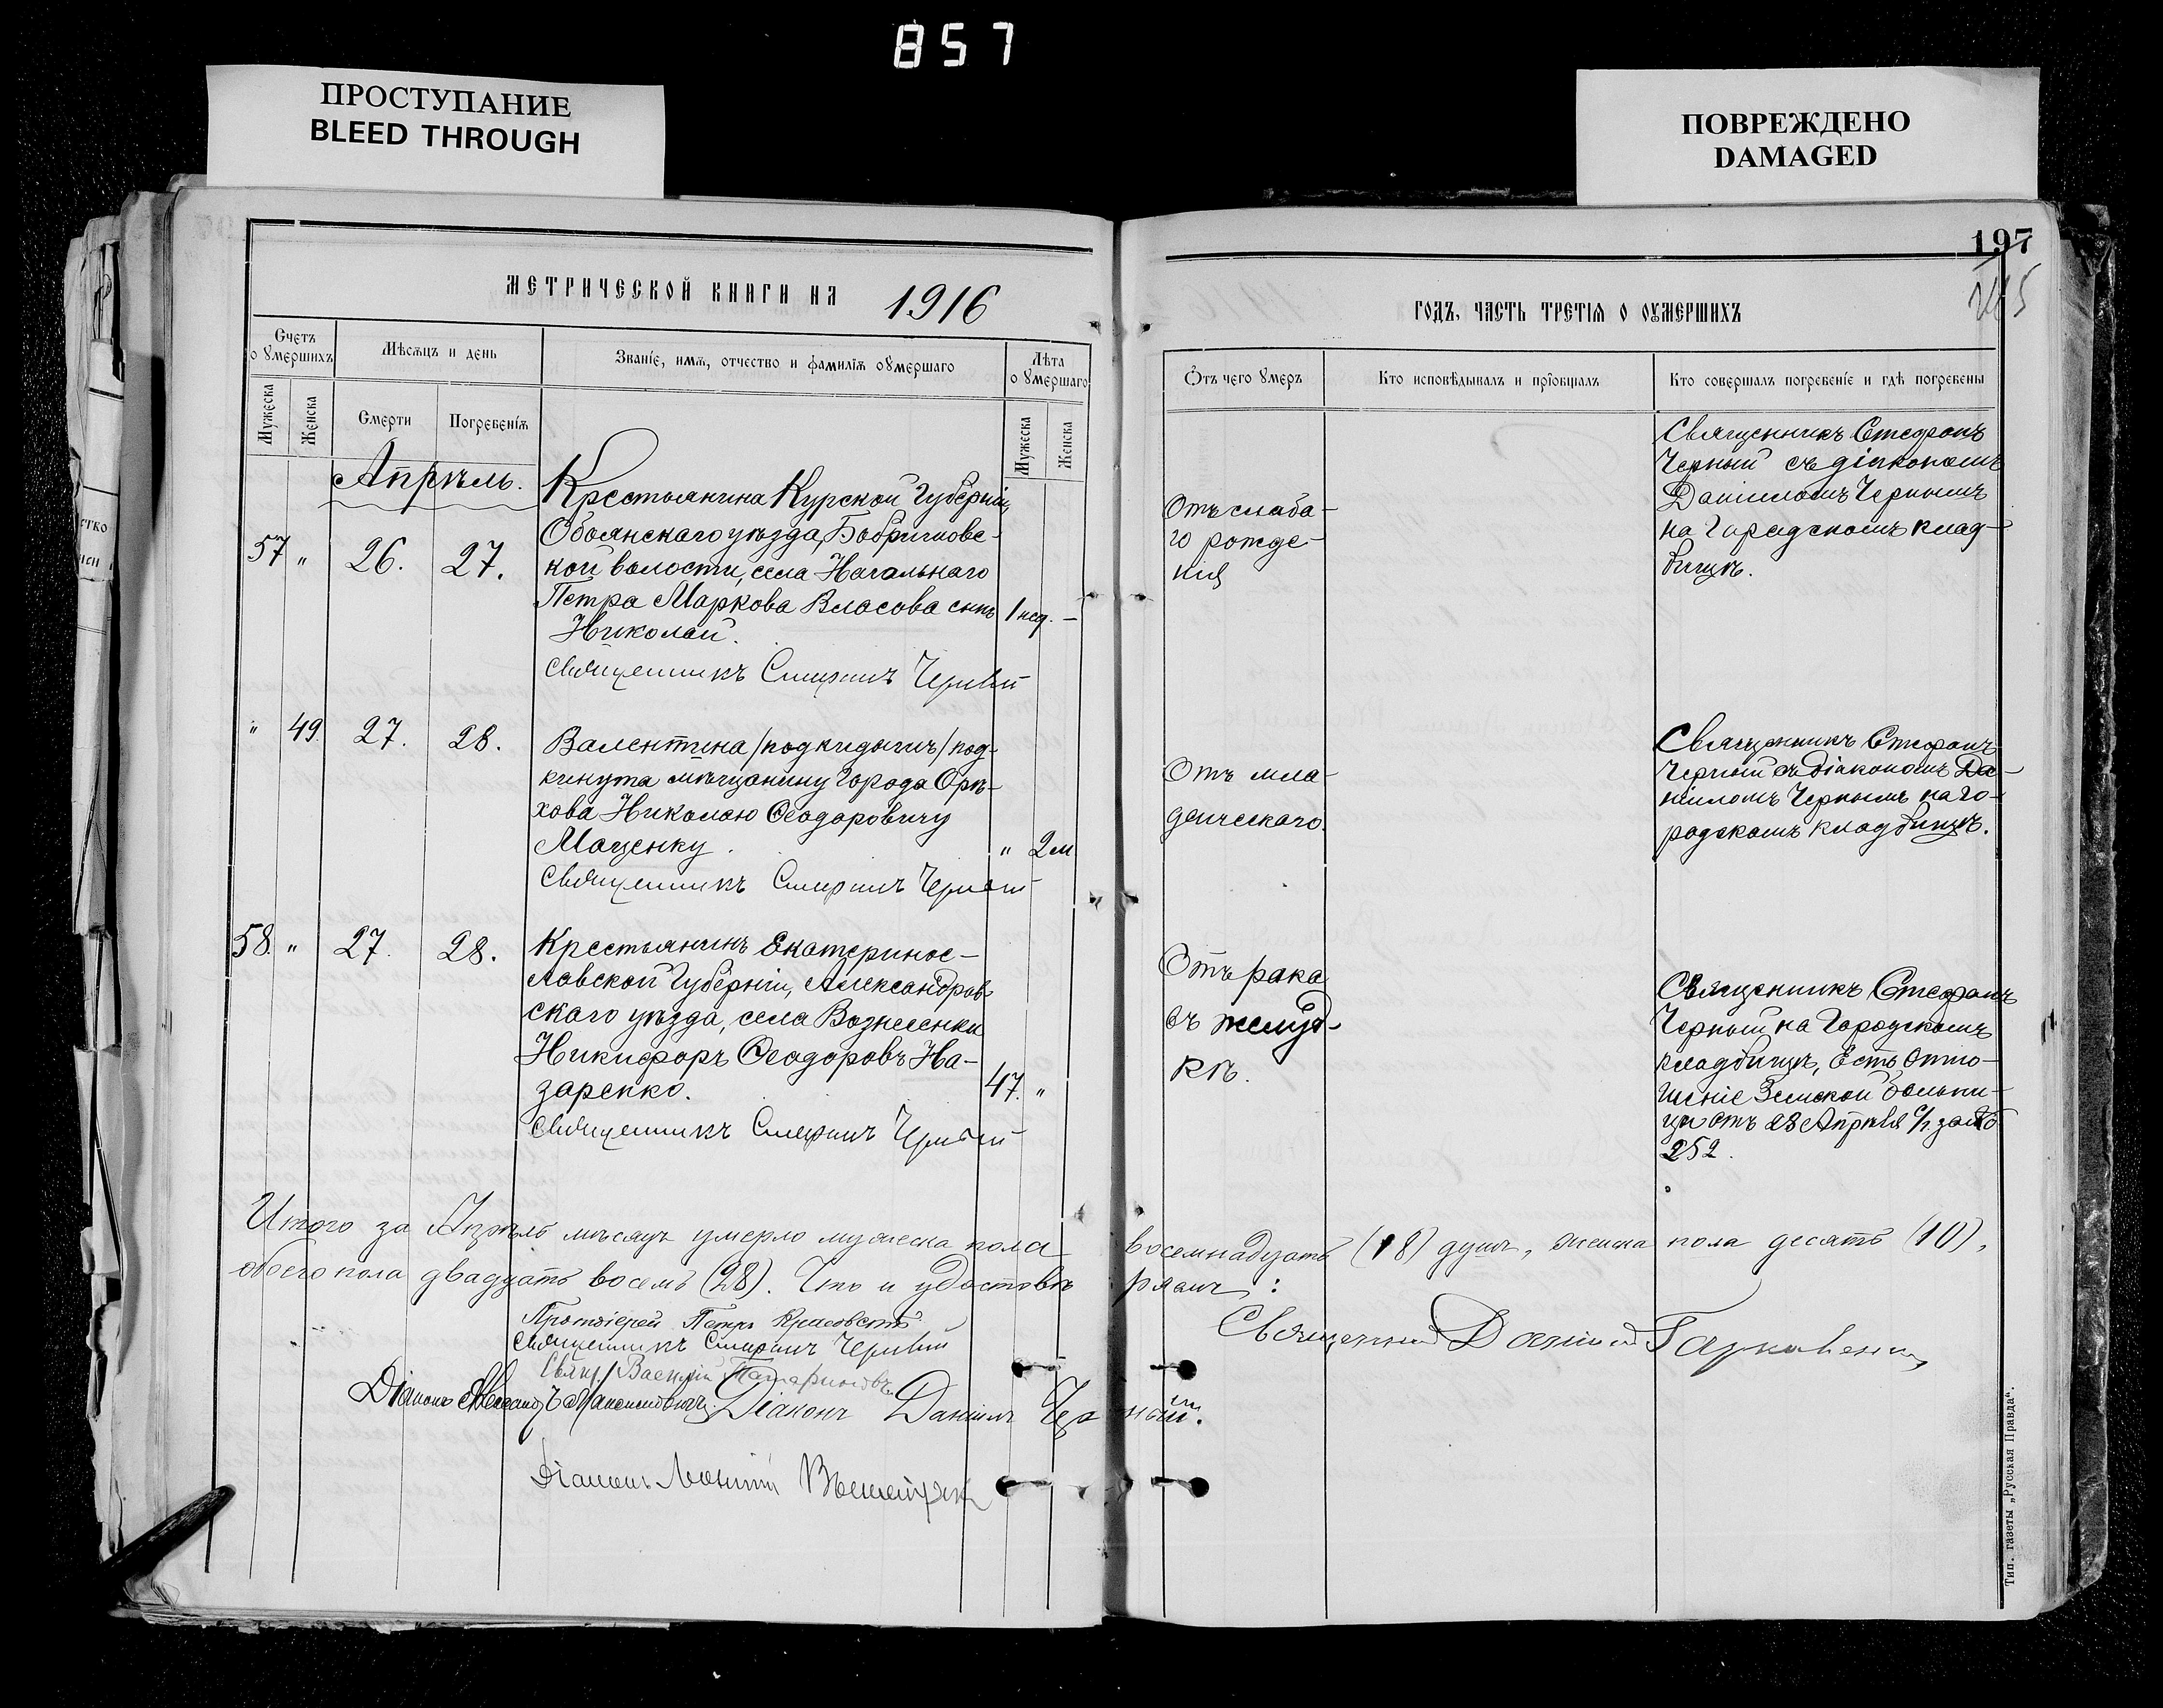 857
ПРОСТУПАНИЕ
BLEED THROUGH
ПОВРЕЖДЕНО
DAMAGED
МЕТРИЧЕСКОЙ КНИГИ НА 1916
Счетъ
о умершихъ
Мѣсяцъ и день
Званіе, имя, отчество и фамилія оумершаго
Лѣта
о умершаго
Мужеска
Женска
Смерти
Погребенія
Мужеска
Женска
Апрѣль.
57 " 26. 27.
Крестьянина Курской Губерніи,
Обоянскаго уѣзда, Бобришовс-
кой волости, села Нагольнаго
Петра Маркова Власова сынъ
Николай.
1 нед. —
Священникъ Стефанъ Черный
" 49. 27. 28.
Валентина /подкидышъ/ под-
кинута мѣщанину города Орѣ-
хова Николаю Ѳеодоровичу
Маценку.
" 2 м
Священникъ Стефанъ Черный
58. " 27. 28.
Крестьянинъ Екатеринос-
лавской Губерніи, Александров-
скаго уѣзда, села Вознесенки
Никифоръ Ѳеодоровъ На-
заренко.
47. "
Священникъ Стефанъ Черный
Итого за Апрѣль мѣсяцъ умерло мужеска пола
обоего пола двадцать восемь (28). Что и удостовѣ
Протоіерей Петръ
Священникъ Стефанъ Черный
Свящ. Василій
Діаконъ Александръ
Діаконъ Даніилъ Черный.
Діаконъ
197
ГОДЪ, ЧАСТЬ ТРЕТІЯ О ОУМЕРШИХЪ
Отъ чего умеръ
Кто исповѣдывалъ и пріобщалъ
Кто совершалъ погребеніе и гдѣ погребены
Отъ слаба-
го рожде-
нія
Священникъ Стефанъ
Черный съ діакономъ
Даніиломъ Чернымъ
на Городскомъ клад-
бищѣ.
Отъ мла-
денческаго.
Священникъ Стефанъ
Черный съ діакономъ Да-
ніиломъ Чернымъ на го-
родскомъ кладбищѣ.
Отъ рака
въ желуд-
кѣ.
Священникъ Стефанъ
Черный на Городскомъ
кладбищѣ, Есть отно-
шеніе Земской больни-
цы отъ 28 Апрѣля с/г. за №
252.
восемнадцать (18) душъ, женска пола десять (10),
ряемъ:
Священникъ Даніилъ
Тип. газеты „Русская Правда".